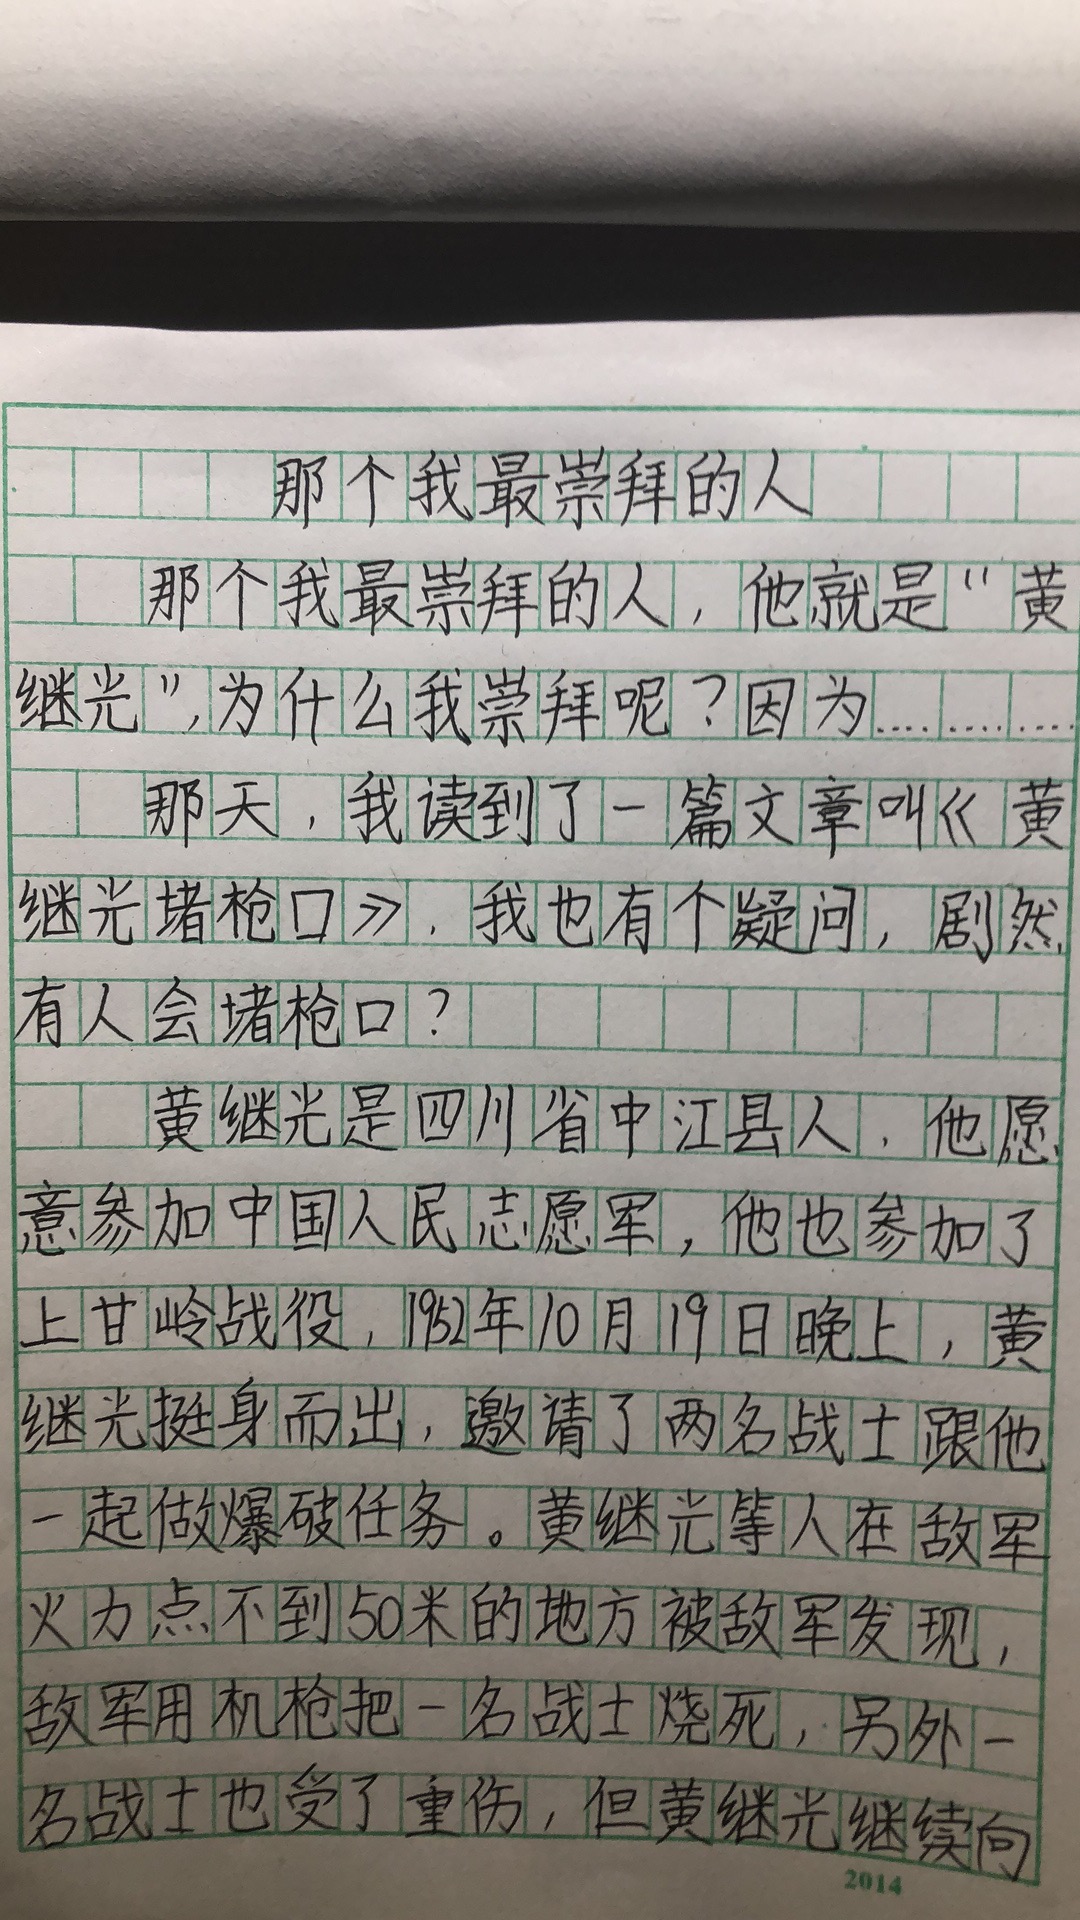 那个我最崇拜的人
那个我最崇拜的人,他就是"黄
继光",为什么我崇拜呢?因为…………
那天,我读到了一篇文章叫《黄
继光堵枪口》.我也有个疑问,剧然
有人会堵枪口?
黄继光是四川省中江县人.他愿
意参加中国人民志愿军,他也参加了
上甘岭战役,1952年10月19日晚上,黄
继光挺身而出,邀请了两名战士跟他
一起做爆破任务。黄继光等人在敌军
火力点不到50米的地方被敌军发现,
敌军用机枪把一名战士烧死,另外一
名战士也受了重伤,但黄继光继续向
2014